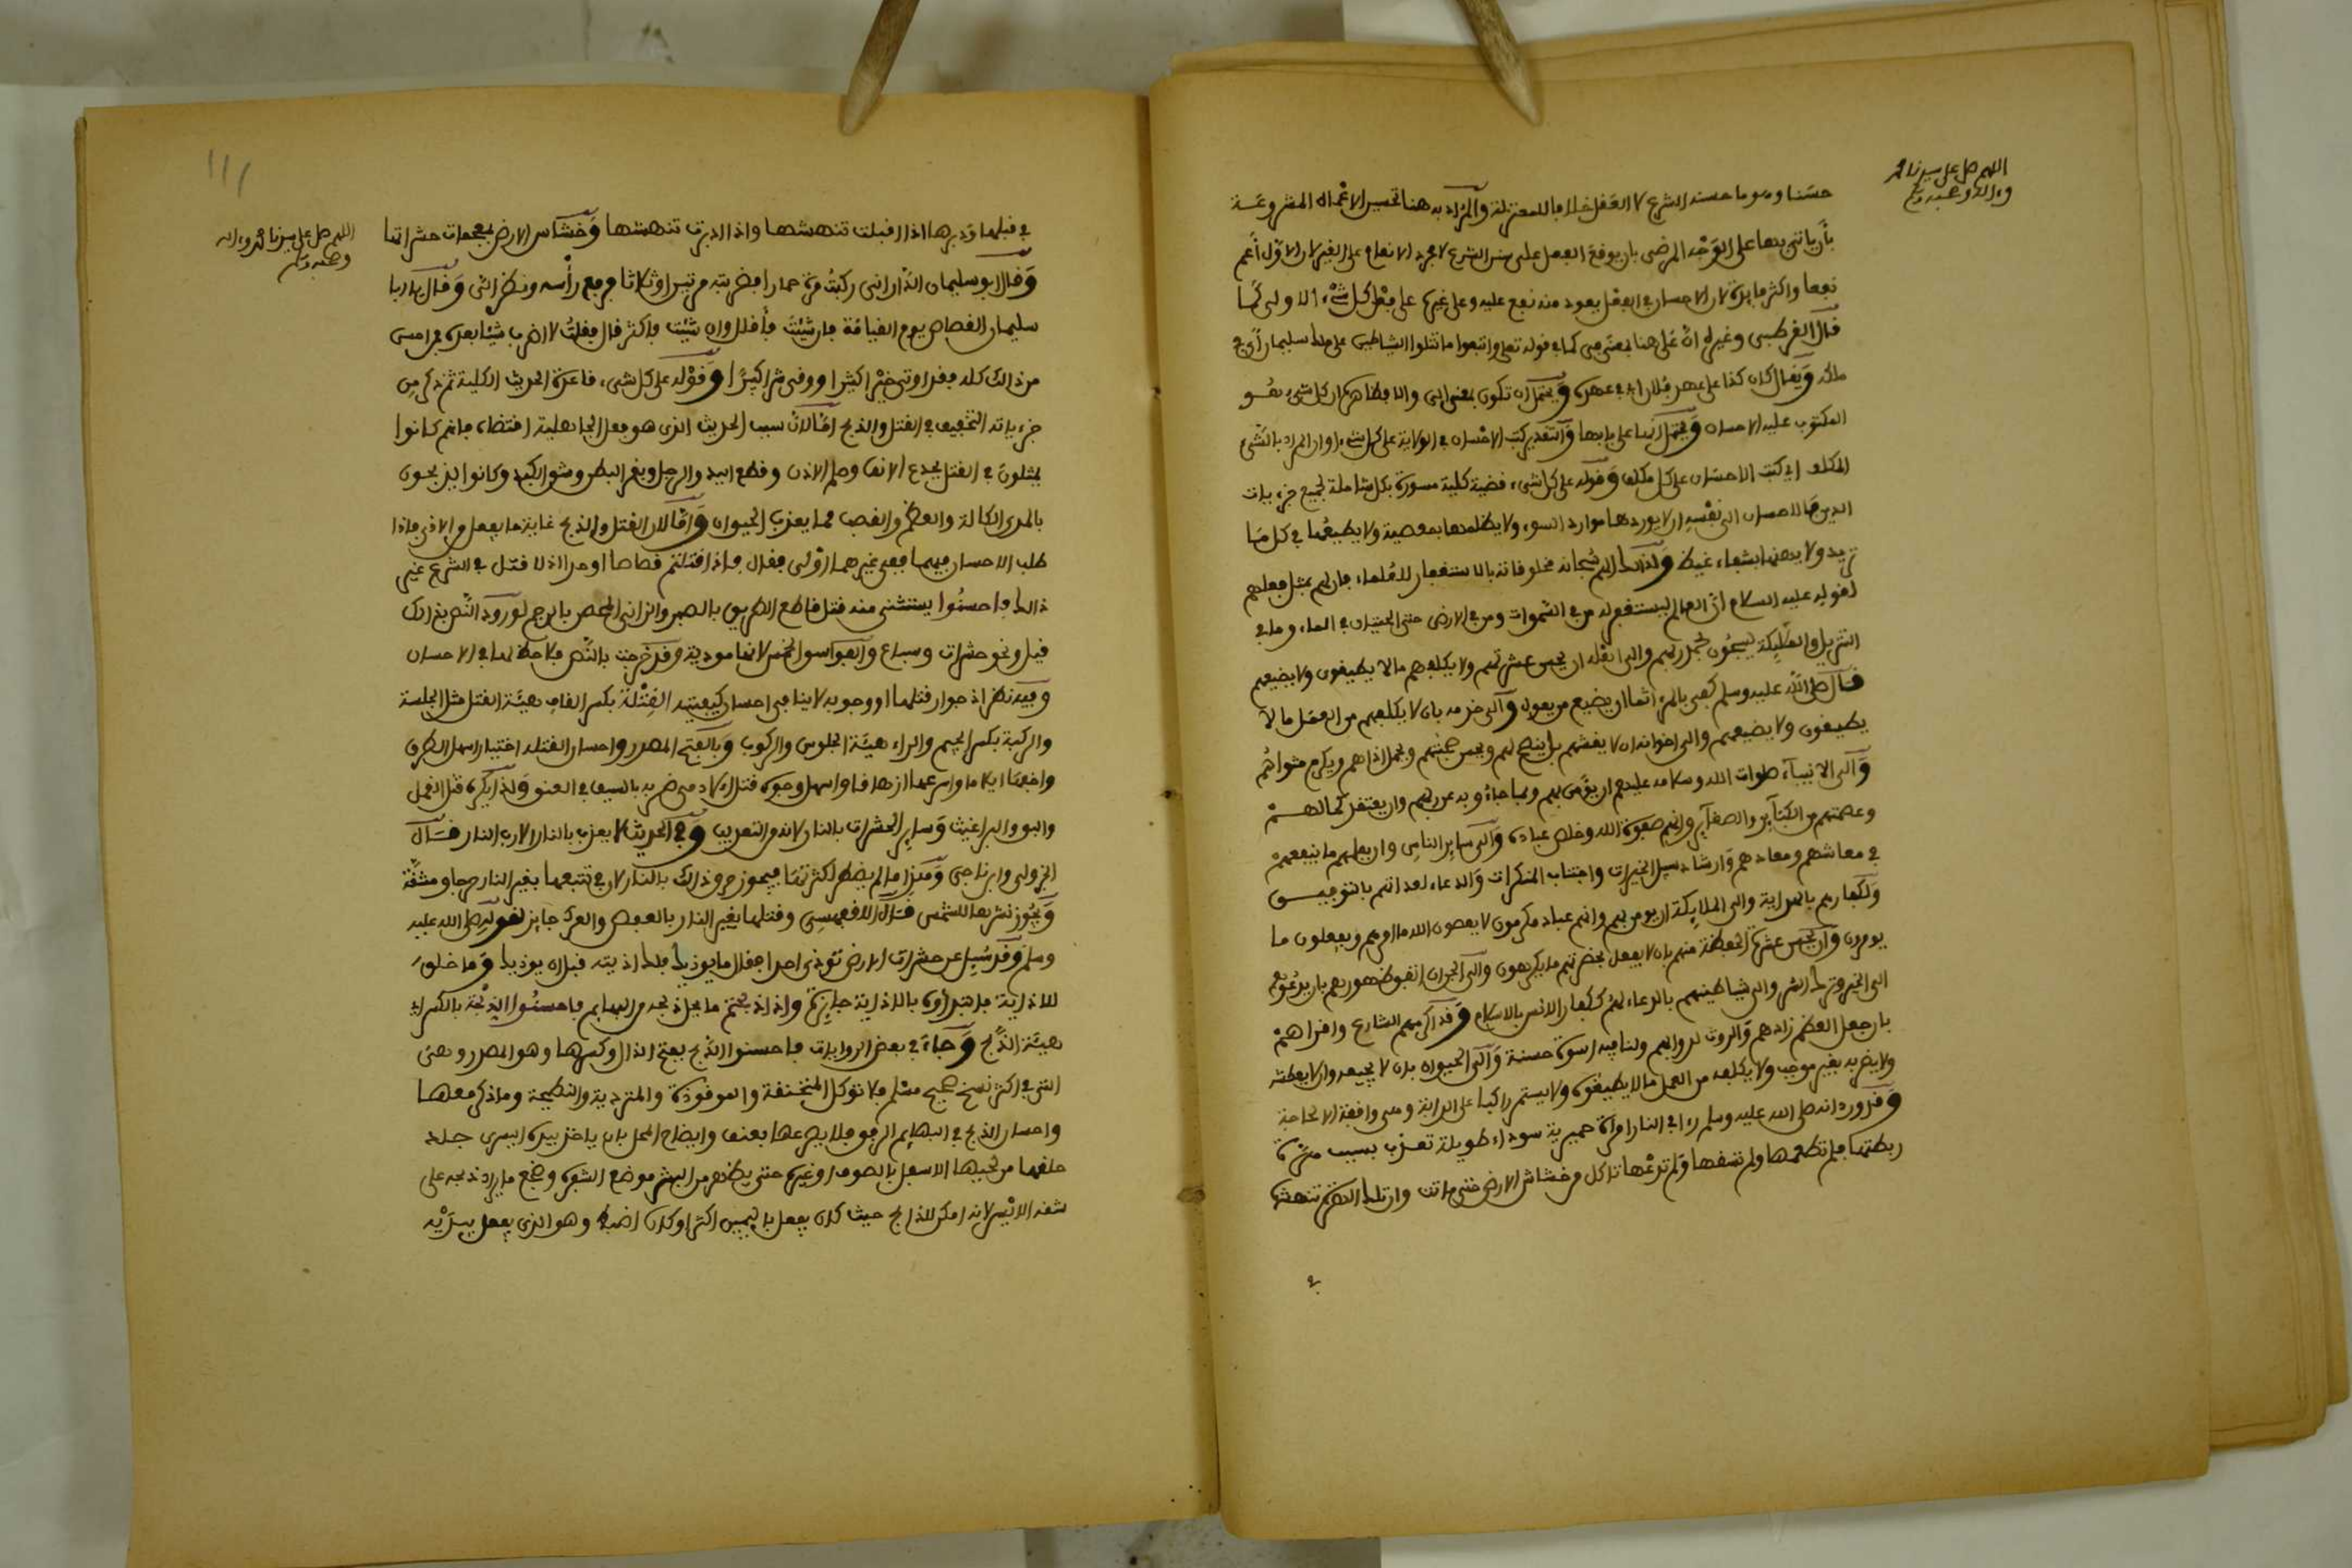 اللهم صل على سيدنا محمد
وءاله وصحبه وسلم
حسنا وهو ما حسنه الشرع لا العقل خلافا للمعتزلة والمراد به هنا تحسين الاعمال المشروعة
بأن ياتي بها على الوجه المرضي بان يوقع الفعل على سنن الشرع لا مجرد الانعام على الغير لان الاول أعم
نفعا واكثر فايدة لان الاحسان في الفعل يعود منه نفع عليه وعلى غيره على فعل كل شيء الاولى كما
قال القرطبي وغيره ان على هنا بمعنى في كما في قوله تعلى واتبعوا ما تتلوا الشياطين على ملك سليمان أي في
ملكه ويقال كان كذا على عهد فلان اي في عهده ويحتمل ان تكون بمعنى الى والا فظاهره ان كل شيء هو
المكتوب عليه الاحسان ويحتمل انها على بابها والتقدير كتب الاحسان في الولاية على كل شيء او ان المراد بالشيء
المكلف اي كتب الاحسان على كل مكلف وقوله على كل شيء قضية كلية مسورة بكل شاملة لجميع جزءيات
الدين فالاحسان الى نفسه ان لا يوردها موارد السوء ولا يظلمها بمعصية ولا يطيعها في كل ما
تريد ولا يدعها بشفاء غيظ ولذلك الهم سبحانه مخلوقاته بالاستغفار للعلماء فان لهم بمثل فعلهم
لقوله عليه السلام ان العالم ليستغفر له من في السموات ومن في الارض حتى الحيتان في الماء وما في
التنزيل والملئكة يسبحون بحمد ربهم والى اهله ان يحسن عشرتهم ولا يكلفهم ما لا يطيقون ولا يضيعهم
قال صلى الله عليه وسلم كفى بالمرء اثما ان يضيع من يعول والى خدمه بان لا يكلفهم من العمل ما لا
يطيقون ولا يضيعهم والى اخوانه ان لا يغشهم بل ينصح لهم ويحسن صحبتهم ويحمل اذاهم ويكرم مثواهم
والى الانبياء صلوات الله وسلامه عليهم ان يؤمن بهم وبما جاءوا به عن ربهم وان يعتقد كمالهم
وعصمتهم من الكبآير والصغآير وانهم صفوة الله وخلص عباده والى ساير الناس وان يعلمهم ما ينفعهم
في معاشهم ومعادهم وارشاد سبل الخيرات واجتناب المنكرات والدعاء لعداتهم بالتوفيق
ولكفارهم بالهداية والى الملايكة ان يومن بهم وانهم عباد مكرمون لا يعصون الله ما امرهم ويفعلون ما
يومرون وان يحسن عشرة الحفظة منهم بان لا يفعل بحضرتهم ما يكرهون والى الجن ان اتفق ظهورهم بان يدعوهم
الى الخير وترك الشر والى شياطينهم بالدعاء لهم ككفار الانس بالاسلام وقد اكرمهم الشارع واقراهم
بان جعل العظم زادهم والروث لدوابهم ولنا فيه اسوة حسنة والى الحيوان بان لا يجيعه وان لا يعطشه
ولا يضربه بغير موجب ولا يكلفه من العمل ما لا يطيقه ولا يستمر راكبا على الدابة وهي واقفة الا لحاجة
وقد ورد انه صلى الله عليه وسلم رءا في النار امرأة حميرية سوداء طويلة تعذب بسبب هرة
ربطتها فلم تطعمها ولم تسقها ولم تدعها تاكل من خشاش الارض حتى ماتت وان تلك الهرة تنهشها
اللهم صل على سيدنا محمد وءاله
وصحبه وسلم
في قبلها ودبرها اذا اقبلت تنهشها واذا ادبرت تنهشها وخشاش الارض بمعجمات حشراتها
وقال ابو سليمان الداراني ركبت مرة حمارا فضربته مرتين او ثلاثا فرفع رأسه ونظر الي وقال يا ابا
سليمان القصاص يوم القيامة فان شئت فأقلل وان شئت فاكثر قال فقلت لا اضرب شيئا بعده فمن امسى
من ذلك كله فقد اوتي خيرا كثيرا ووقي شرا كبيرا وقوله على كل شيء قاعدة الحديث الكلية ثم ذكر من
جزءياته التخفيف في القتل والذبح اما لان سبب الحديث الذي هو فعل الجاهلية اقتضاه فانهم كانوا
يمثلون في القتل بجدع الانف وصلم الاذن وقطع اليد والرجل وبقر البطن وشق الكبد وكانوا يذبحون
بالمدى الكالة والعظم والقصب مما يعذب الحيوان واما لان القتل والذبح غاية ما يفعل من الاذى فاذا
طلب الاحسان فيهما ففي غيرهما اولى فقال فاذا قتلتم قصاصا او حدا اذ لا قتل في الشرع غير
ذلك فاحسنوا يستثنى منه قتل قاطع الطريق بالصبر والزاني المحصن بالرجم لورود النص بذلك
قيل ونحو حشرات وسباع والفواسق الخمس لانها موذية وقد خرجت بالنص فلا حظ لها في الاحسان
وفيه نظر اذ جواز قتلها او وجوبه لا ينافي احسان كيفيته القتلة بكسر القاف هيئة القتل مثل الجلسة
والركبة بكسر الجيم والراء هيئة الجلوس والركوب وبالفتح المصدر واحسان القتلة اختيار اسهل الطرق
واخفها ايلاما واسرعها ازهاقا واسهل وجوه قتل الادمي ضربه بالسيف في العنق ولذا يكره قتل القمل
والبق والبراغيث وساير الحشرات بالنار لانه من التعذيب وفي الحديث لا يعذب بالنار الا رب النار قال
الجزولي وابن ناجي وهذا ما لم يضطر لكثرتها فيجوز حرق ذلك بالنار لان في تتبعها بغير النار حرجا ومشقة
ويجوز نشرها للشمس قال الاقفهسي وقتلها بغير النار بالقعص والعرك جايز لقوله صلى الله عليه
وسلم وقد سئل عن حشرات الارض تؤذي احدا فقال ما يوذيك فلك اذيته قبل ان يوذيك وما خلق
للاذاية فابتداوه بالاذاية جايزة واذا ذبحتم ما يحل ذبحه من البهايم فاحسنوا الذبحة بالكسر اي
هيئة الذبح وجاء في بعض الروايات فاحسنوا الذبح بفتح الذال وكسرها وهو المصدر وهي
التي في اكثر نسخ صحيح مسلم فلا توكل المنخنقة والموقوذة والمتردية والنطيحة وما ذكر معها
واحسان الذبح في البهايم الرفق فلا يصرعها بعنف وايضاح المحل بان ياخذ بيده اليسرى جلد
حلقها من لحييها الاسفل بالصوف او غيره حتى يظهر من البشرة موضع الشفرة ويضجع ما يراد ذبحه على
شقه الايسر لانه امكن للذابح حيث كان يفعل باليمين اكثر او كان اضبط وهو الذي يفعل بيديه